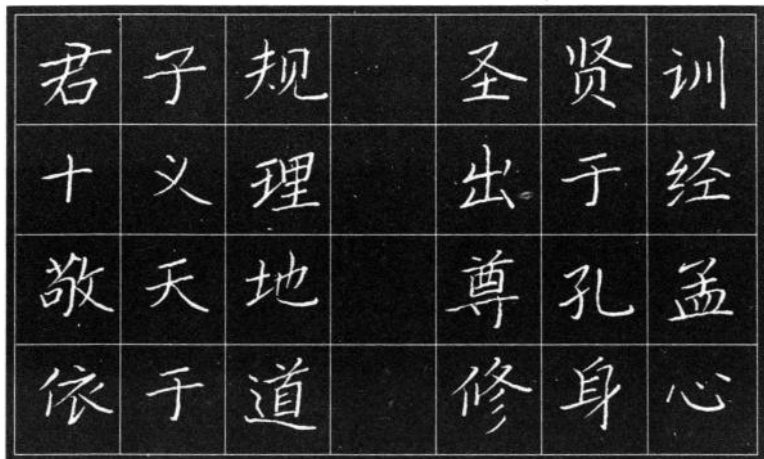 君子规 圣贤训
十义理 出于经
敬天地 尊孔孟
依于道 修身心